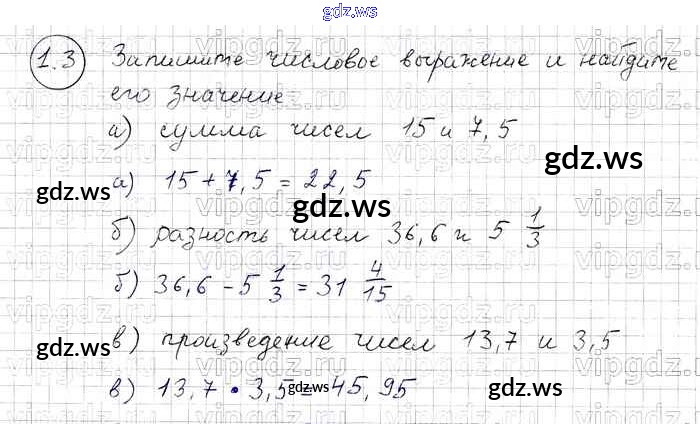 gdz.ws
1.3 Запишите числовое выражение и найдите
его значение
а) сумма чисел 15 и 7,5
gdz.ws
а) 15 + 7,5 = 22,5
gdz.ws
gdz.ws
б) разность чисел 36,6 и 5 1/3
б) 36,6 - 5 1/3 = 31 4/15
в) произведение чисел 13,7 и 3,5
gdz.ws
в) 13,7 • 3,5 = 45,95
gdz.ws
gdz.ws